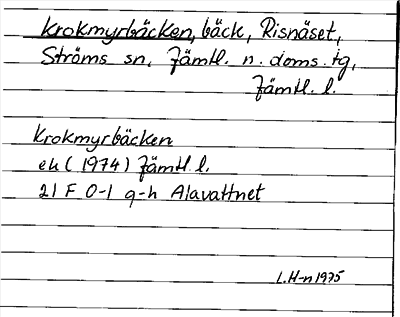 Krokmyrbäcken, bäck, Risnäset,
Ströms sn, Jämtl. n. doms. tg,
Jämtl. l.
Krokmyrbäcken
ek (1974) Jämtl. l.
21 F 0-1 g-h Alavattnet
L.H-n 1975